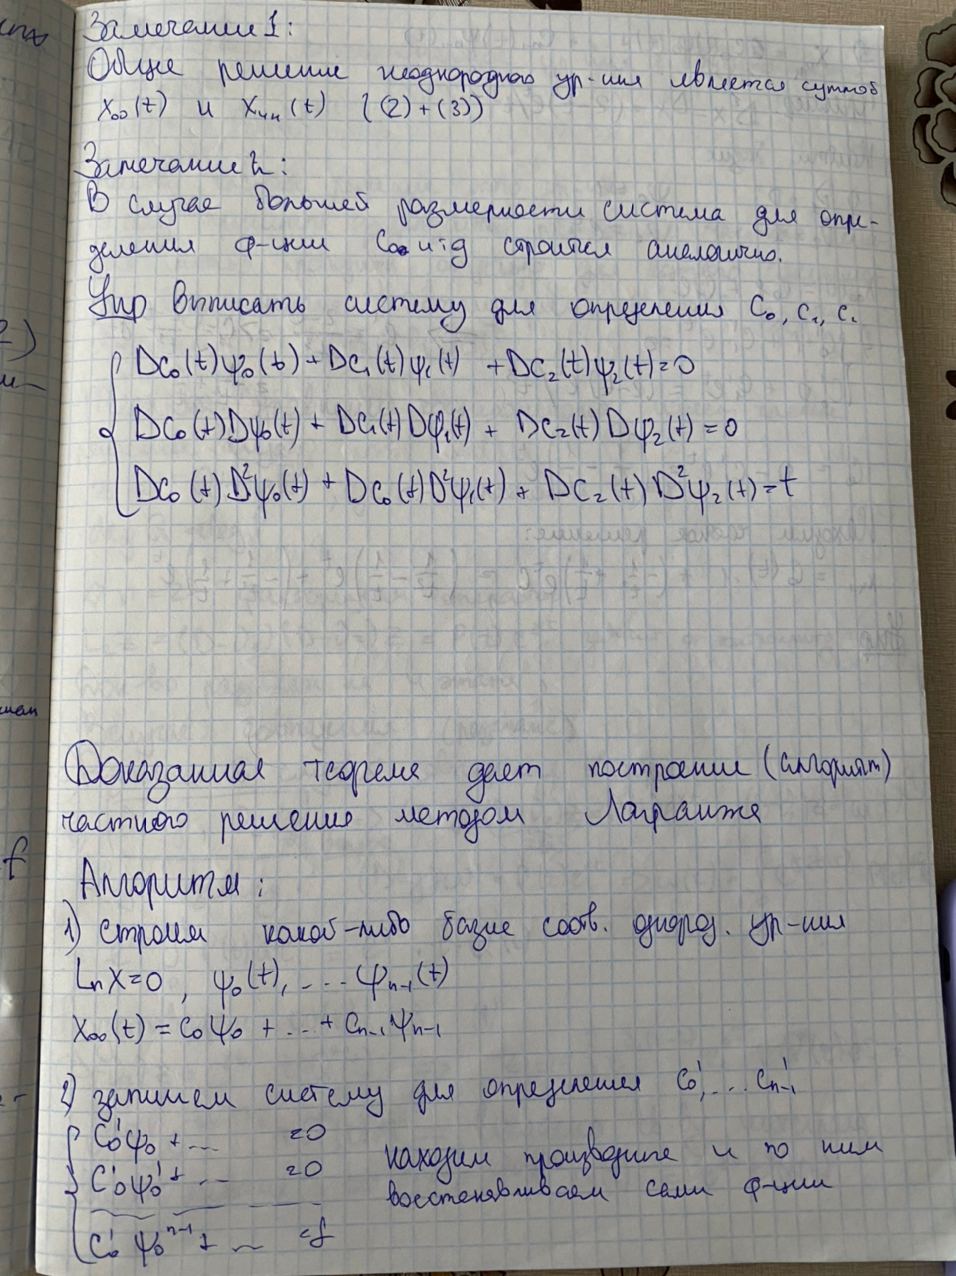 Замечание 1:
Общее решение неоднородного ур-ния является суммой
X₀₀(t) и Xчн(t) ((2)+(3))
Замечание 2:
В случае большей размерности система для опре-
деления ф-ции C₀ и т.д строится аналогично.
Упр Выписать систему для определения C₀, C₁, C₂
DC₀(t)ψ₀(t) + DC₁(t)φ₁(t) + DC₂(t)ψ₂(t) = 0
DC₀(t)Dψ₀(t) + DC₁(t)Dφ₁(t) + DC₂(t)Dφ₂(t) = 0
DC₀(t)D²ψ₀(t) + DC₀(t)D²ψ₁(t) + DC₂(t)D²ψ₂(t) = t
Доказанная теорема дает построение (алгоритм)
частного решения методом Лагранжа
Алгоритм:
1) строим какой-либо базис соотв. однород. ур-ния
LnX=0, ψ₀(t), .... φn-1(t)
X₀₀(t) = C₀ψ₀ + ... + Cn-1ψn-1
2) запишем систему для определения C₀', ... C'n-1
C₀'ψ₀ + ... =0
C₀'ψ₀' + ... =0
C₀'ψ₀ⁿ⁻¹ + ... =f
находим производные и по ним
восстанавливаем сами ф-ции